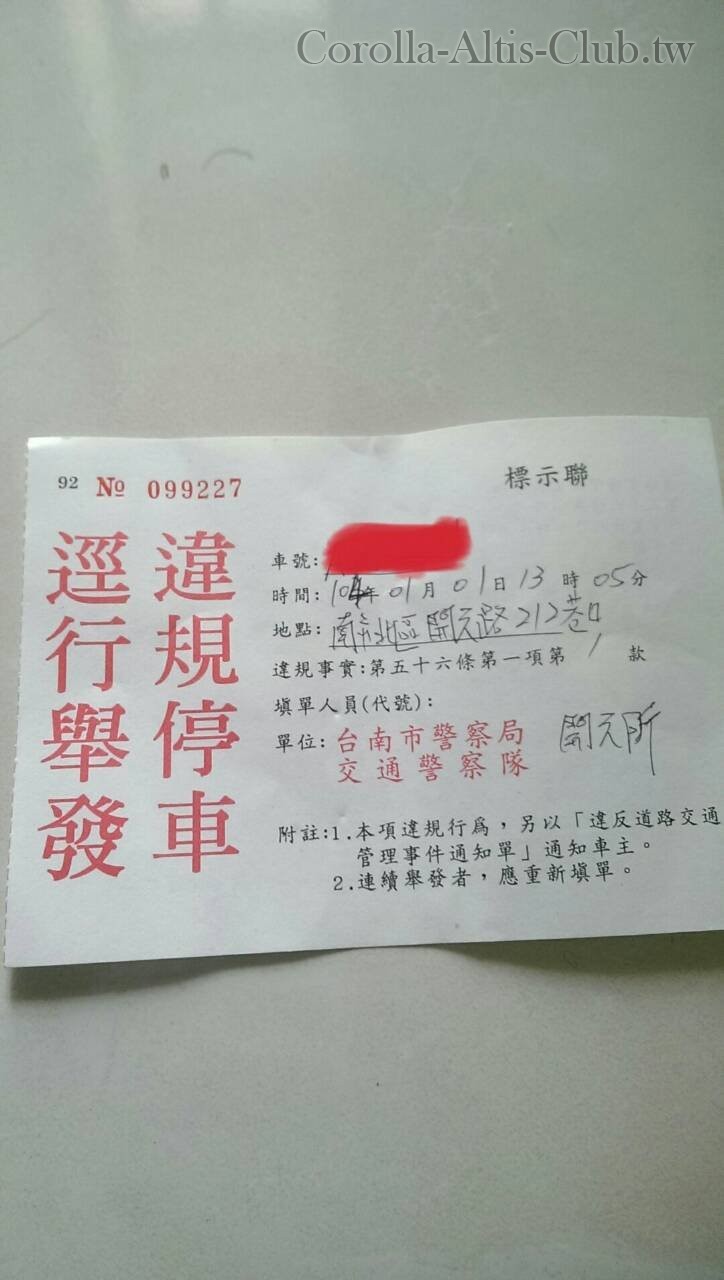 Corolla-Altis-Club.tw
92 № 099227
標示聯
違規停車
逕行舉發
車號:
時間: 104年 01月 01日 13時 05分
地點: 南市北區開元路212巷口
違規事實:第五十六條第一項第 1 款
填單人員(代號):
單位: 台南市警察局 開元所
交通警察隊
附註:1.本項違規行為,另以「違反道路交通
管理事件通知單」通知車主。
2.連續舉發者,應重新填單。